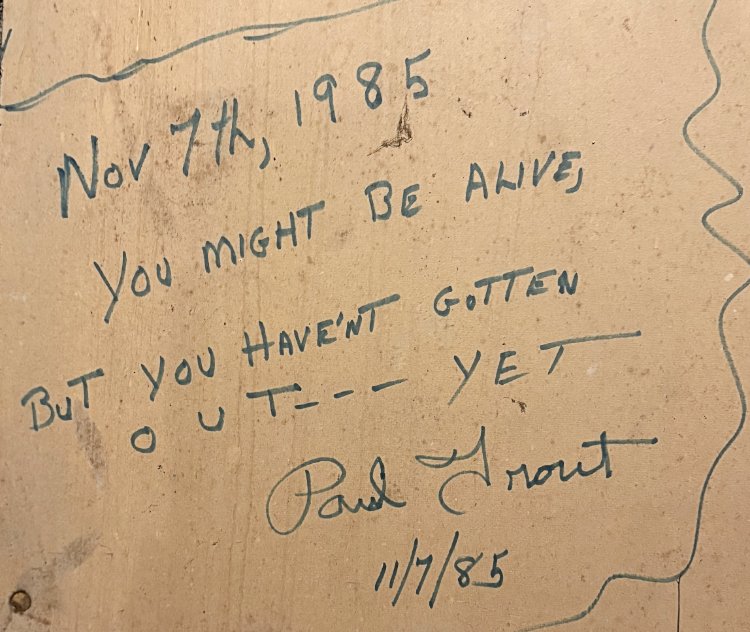 Nov 7th, 1985
YOU MIGHT BE ALIVE,
BUT YOU HAVE'NT GOTTEN
OUT--- YET
Paul Trout
11/7/85